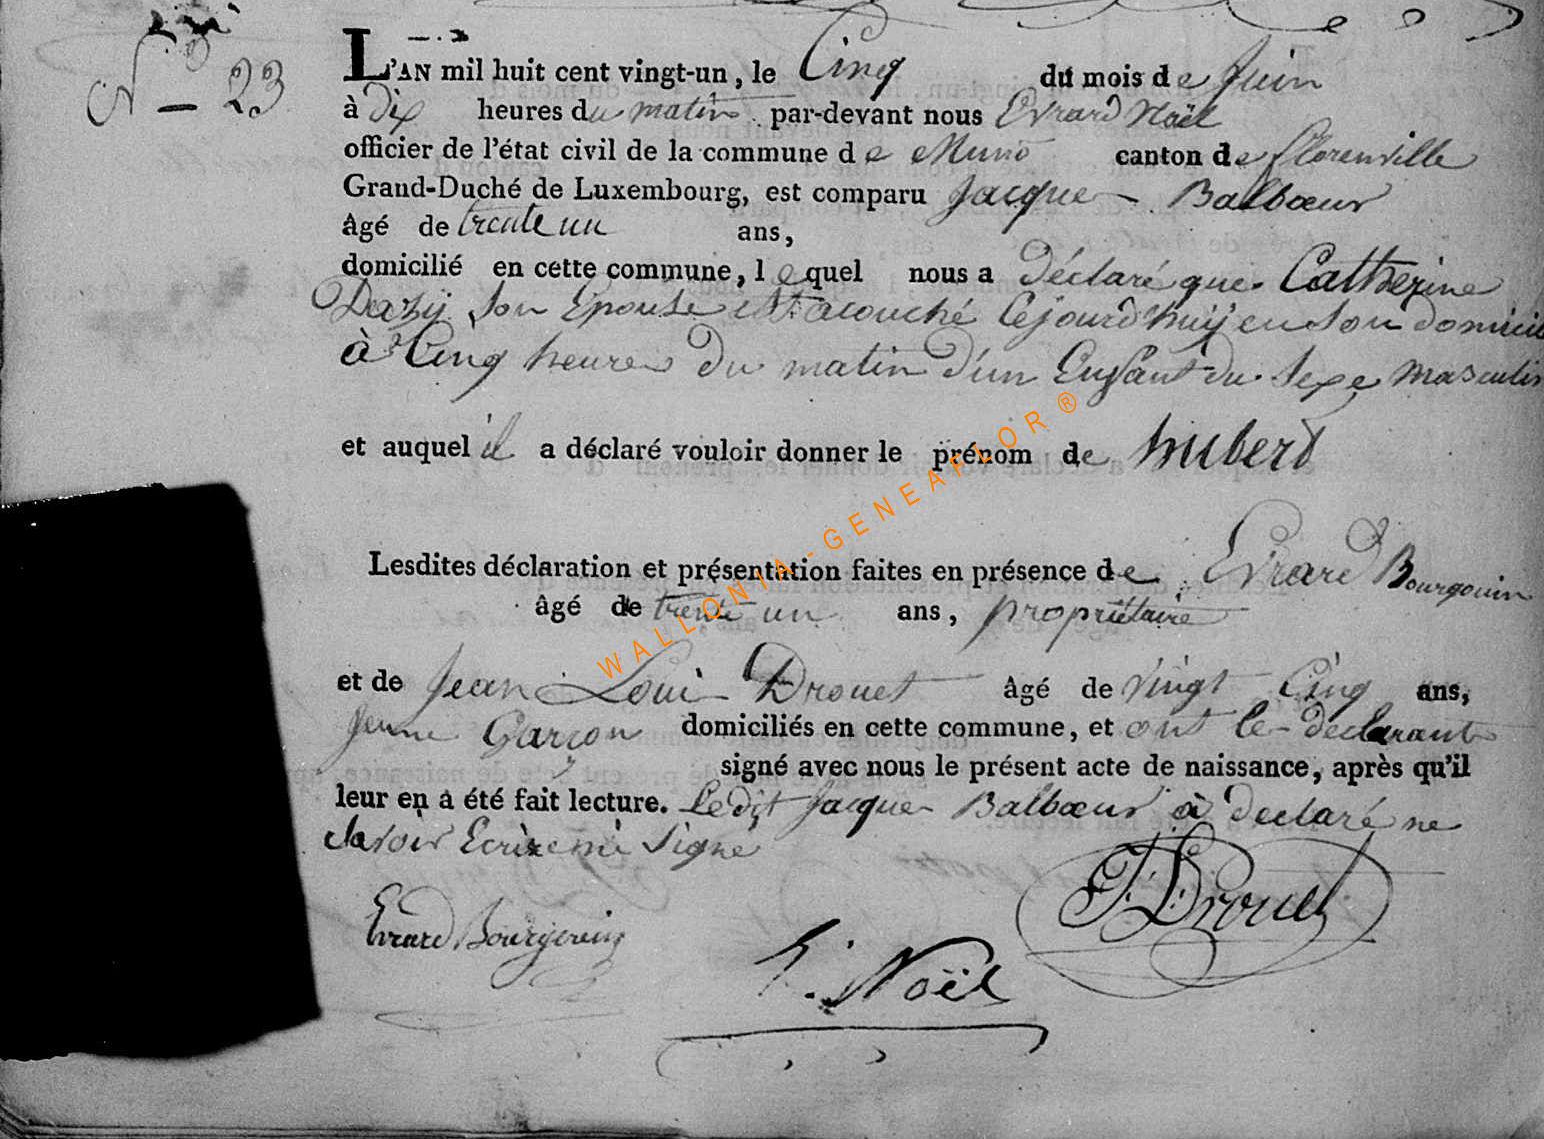 N° 23
L'AN mil huit cent vingt-un, le Cinq du mois de Juin
à Dix heures du matin par-devant nous Evrard Noël
officier de l'état civil de la commune de Muno canton de florenville
Grand-Duché de Luxembourg, est comparu Jacque Balbœur
âgé de trente un ans,
domicilié en cette commune, lequel nous a déclaré que Catherine
Dazÿ Son Epouse est acouché Cejourd'huÿ en Son domicil
à Cinq heures du matin d'un Enfant du Sexe Masculin
et auquel il a déclaré vouloir donner le prénom de hubert
Lesdites déclaration et présentation faites en présence de Evrard Bourgouin
âgé de trente un ans, propriétaire
et de Jean Loui Drouet âgé de vingt Cinq ans,
Jeune Garçon domiciliés en cette commune, et ont le declarant
signé avec nous le présent acte de naissance, après qu'il
leur en a été fait lecture. Ledit Jacque Balbœur à declaré ne
savoir Ecrire ni Signé
Evrard Bourgouin
E. Noël
Drouet
WALLONIA-GENEAFLOR ®